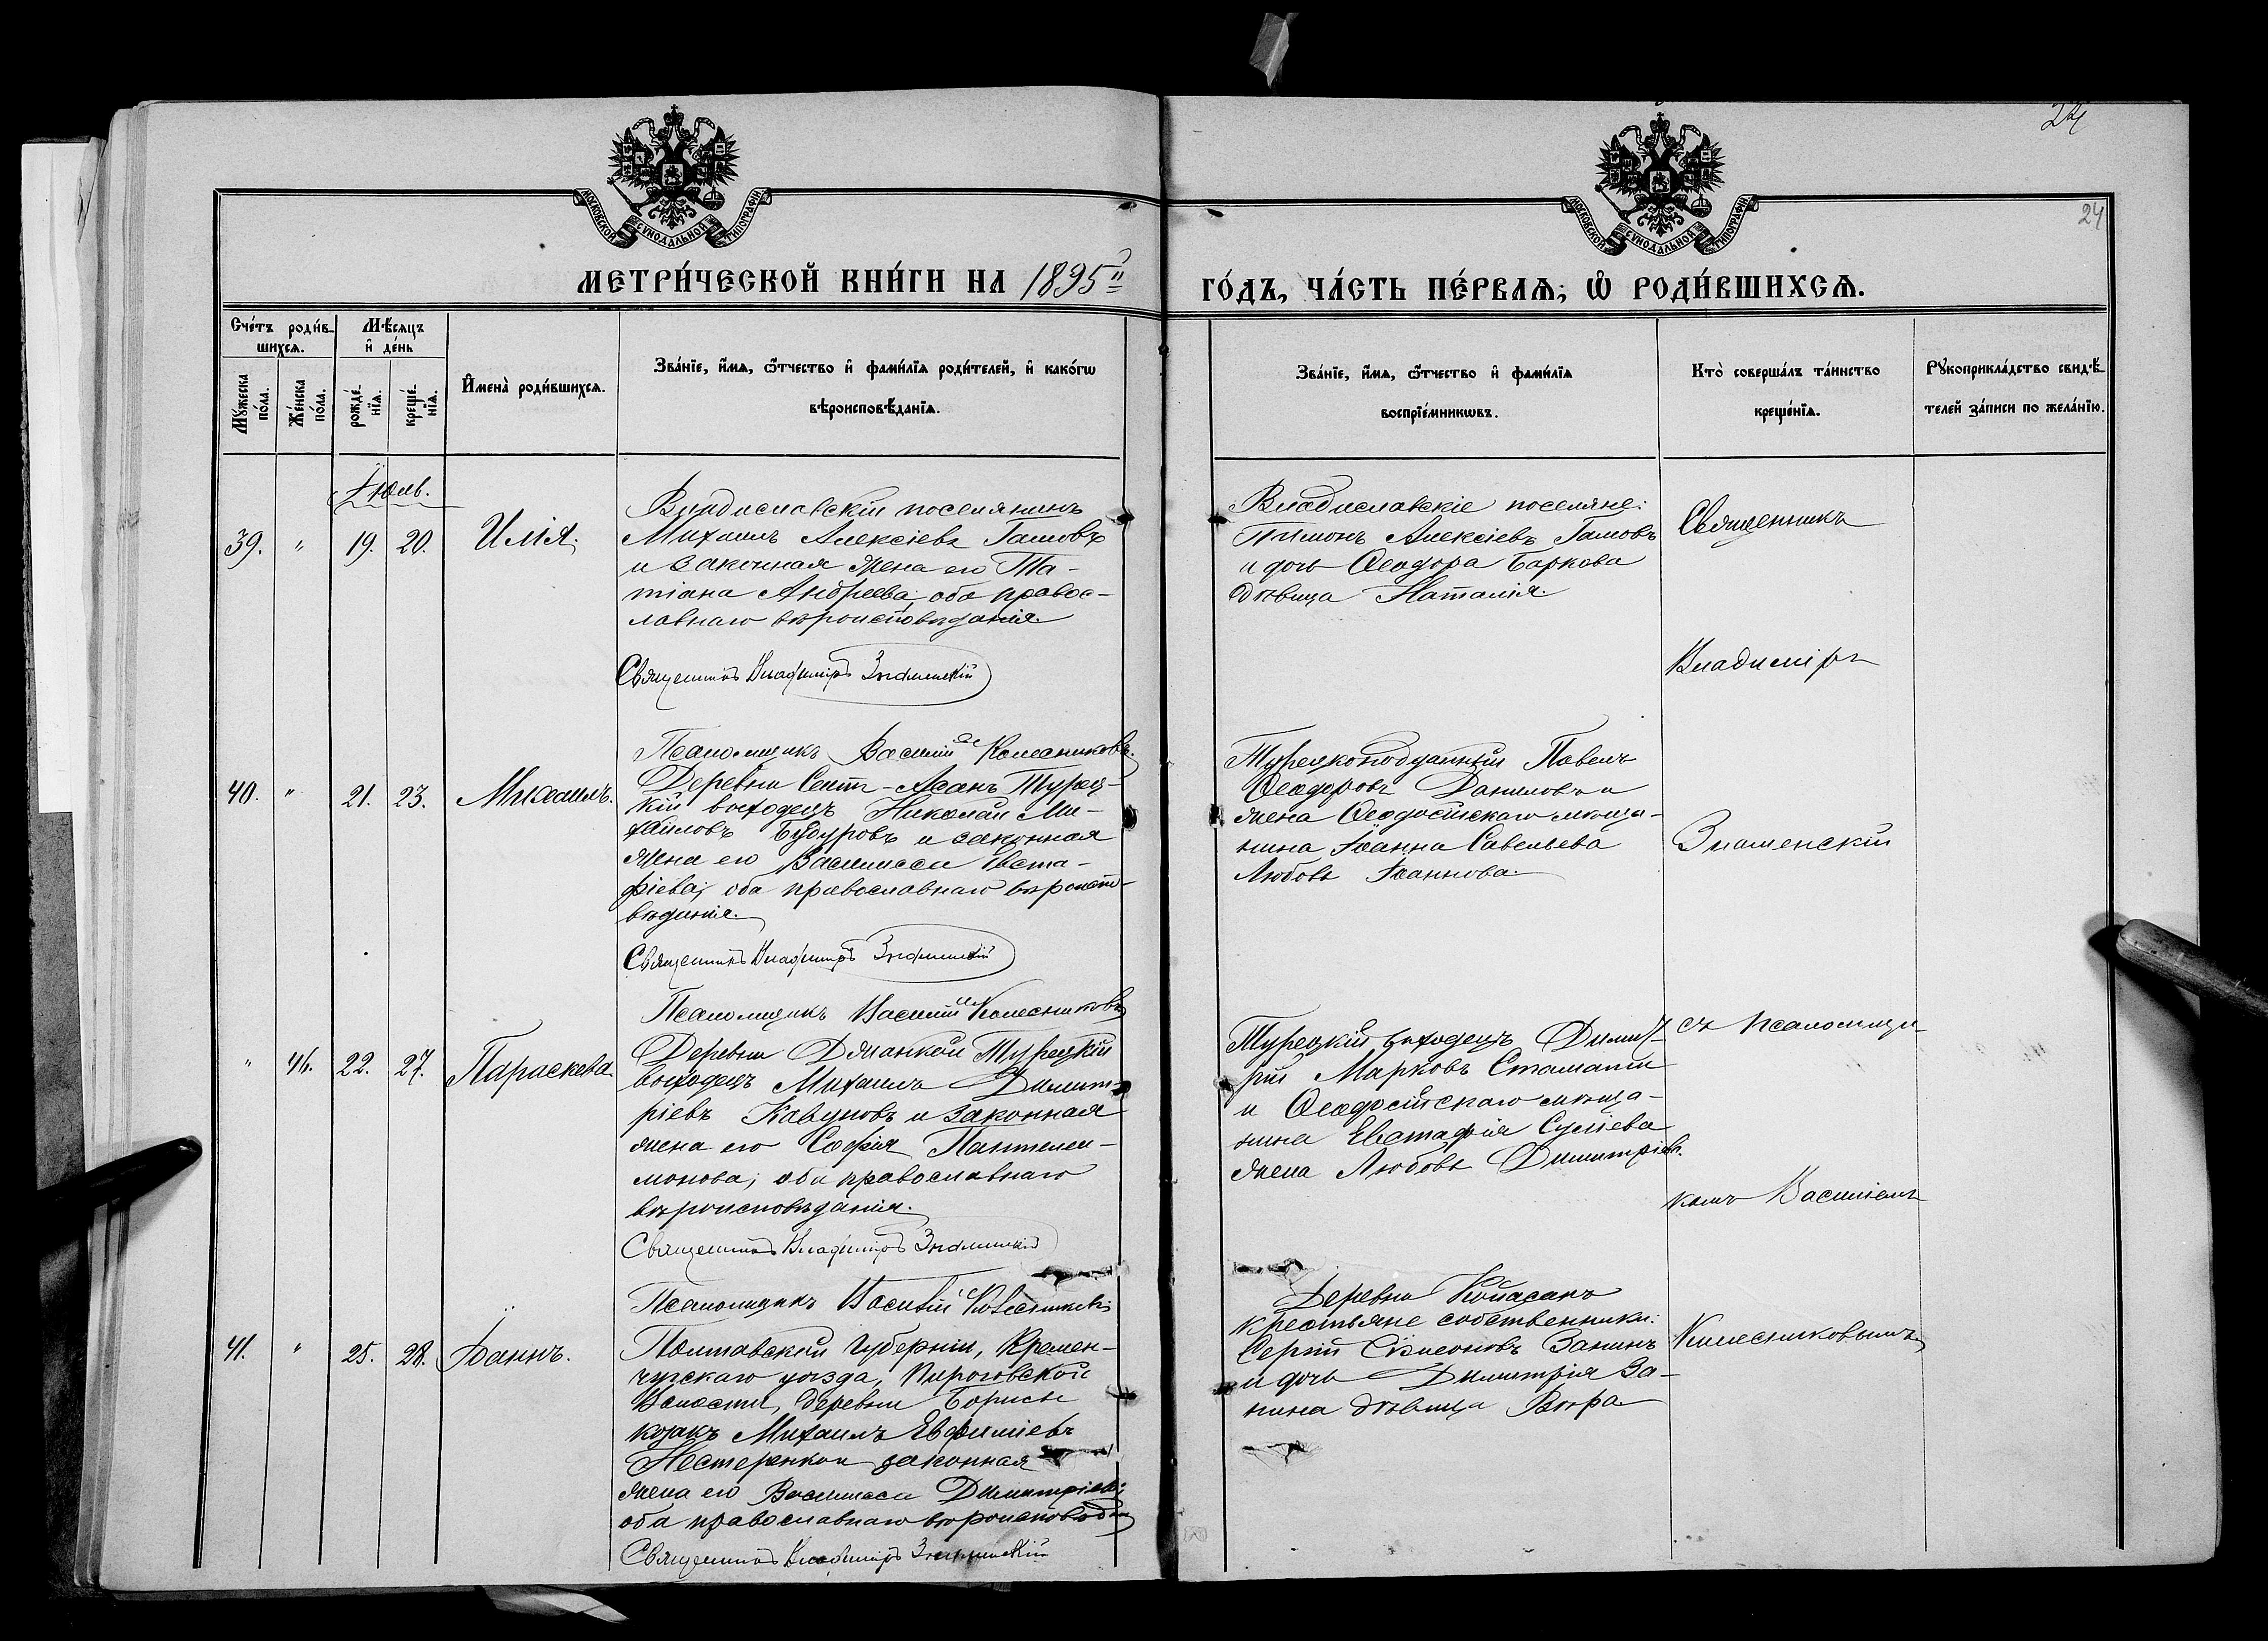 24
24
МОСКОВСКОЙ СѴНОДАЛЬНОЙ ТИПОГРАФІИ
МОСКОВСКОЙ СѴНОДАЛЬНОЙ ТИПОГРАФІИ
МЕТРИ́ЧЕСКОЙ КНИ́ГИ НА 1895й
ГО́ДЪ, ЧА́СТЬ ПЕ́РВАѦ; Ѡ҆ РОДИ́ВШИХСѦ.
Сче́тъ роди́в-
шихсѧ.
Мꙋ́жеска по́ла.
Же́нска по́ла.
Мѣ́сѧцъ
и҆ де́нь
рожде́нїѧ.
креще́нїѧ.
И҆мена̀ роди́вшихсѧ.
Зва́нїе, и҆́мѧ, ѻ҆́тчество и҆ фами́лїѧ роди́телей, и҆ како́гѡ
вѣроисповѣ́данїѧ.
Зва́нїе, и҆́мѧ, ѻ҆́тчество и҆ фами́лїѧ
воспрїе́мникѡвъ.
Кто̀ соверша́лъ та́инство
креще́нїѧ.
Рꙋкоприкла́дство свидѣ́-
телей за́писи по жела́нїю.
Іюль.
39. " 19. 20. Илія.
Владиславскій поселянинъ
Михаилъ Алексіевъ Гашовъ
и законная жена его Та-
тіана Андреева; оба правос-
лавнаго вѣроисповѣданія.
Священникъ Владиміръ Знаменскій
Псаломщикъ Василій Колесниковъ.
Владиславскіе поселяне:
Пимонъ Алексіевъ Гашовъ
и дочь Ѳеодора Баркова
дѣвица Наталія.
Священникъ
Владиміръ
40. " 21. 23. Михаилъ.
Деревни Сеит-Асанъ Турец-
кій выходецъ Николай Ми-
хайловъ Будуровъ и законная
жена его Василисса Евста-
фіева; оба православнаго вѣроиспо-
вѣданія.
Священникъ Владиміръ Знаменскій
Псаломщикъ Василій Колесниковъ
Турецкоподданный Павелъ
Ѳеодоровъ Даниловъ и
жена Ѳеодосійскаго мѣща-
нина Іоанна Савельева
Любовь Іоаннова.
Знаменскій
" 46. 22. 27. Параскева.
Деревни Джанкой Турецкій
выходецъ Михаилъ Димит-
ріевъ Кавуновъ и законная
жена его Софія Пантелеи-
монова; оба православнаго
вѣроисповѣданія.
Священникъ Владиміръ Знаменскій
Псаломщикъ Василій Колесниковъ
Турецкій выходецъ Димит-
рій Марковъ Стамати
и Ѳеодосійскаго мѣща-
нина Евстафія
жена Любовь Димитріев.
съ псаломщи-
комъ Василіемъ
41. " 25. 28. Іоаннъ.
Полтавской губерніи, Кремен-
чугскаго уѣзда, Пироговской
Волости, деревни Борисы
козакъ Михаилъ Евфиміевъ
Нестеренко и законная
жена его Василисса Димитріева;
оба православнаго вѣроисповѣдан
Священникъ Владиміръ Знаменскій
Деревни Койасанъ
крестьяне собственники:
Сергій Сѵмеоновъ Занинъ
и дочь Димитрія За-
нина дѣвица Вѣра.
Колесниковымъ